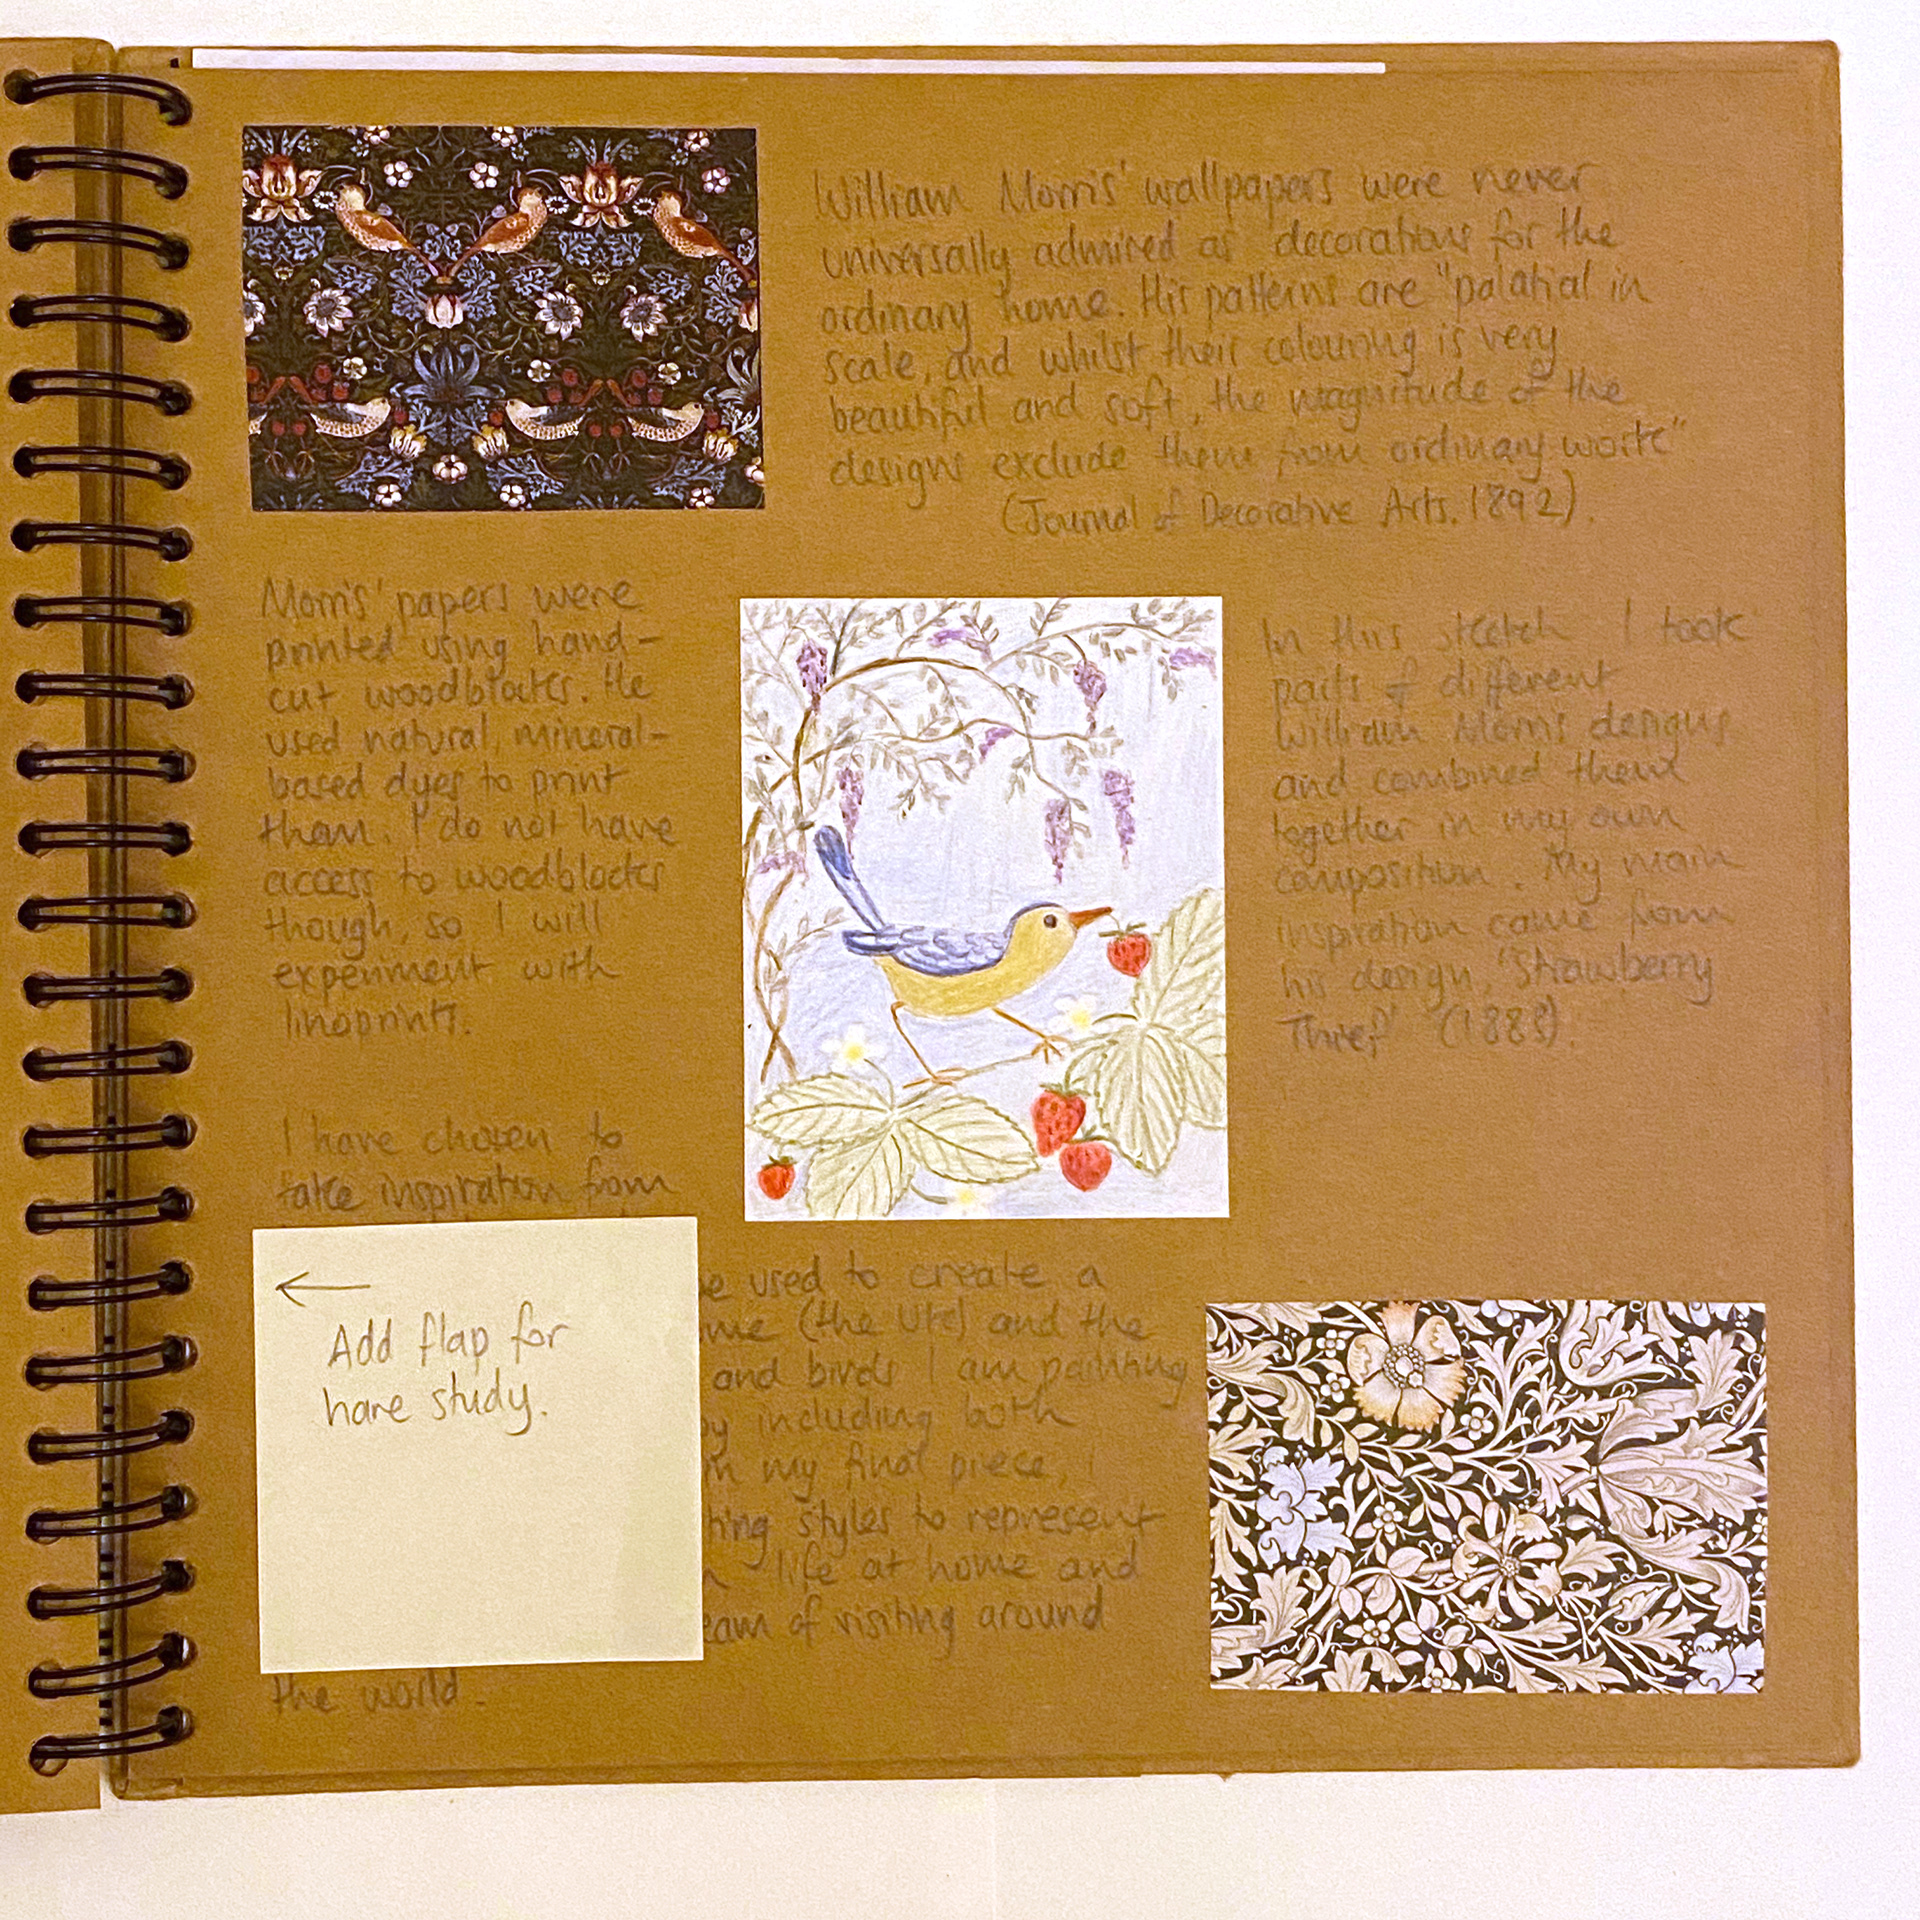 William Morris' wallpapers were never
universally admired as decorations for the
ordinary home. His patterns are "palatial in
scale, and whilst their colouring is very
beautiful and soft, the magnitude of the
designs exclude them from ordinary work"
(Journal of Decorative Arts. 1892).
Morris' papers were
printed using hand-
cut woodblocks. He
used natural, mineral-
based dyes to print
them. I do not have
access to woodblocks
though, so I will
experiment with
linoprints.
In this sketch I took
parts of different
William Morris designs
and combined them
together in my own
composition. My main
inspiration came from
his design, "Strawberry
Thief" (1883).
I have chosen to
take inspiration from
used to create a
(the UK) and the
and birds I am painting
by including both
in my final piece, I
styles to represent
life at home and
of visiting around
the world.
Add flap for
hare study.